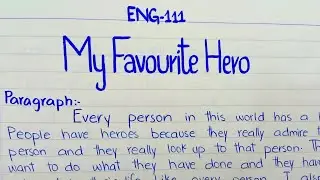 ENG-111
My Favourite Hero
Paragraph:-
Every person in this world has a
People have heroes because they really admire
person and they really look up to that person.
want to do what they have done and they
like every person I